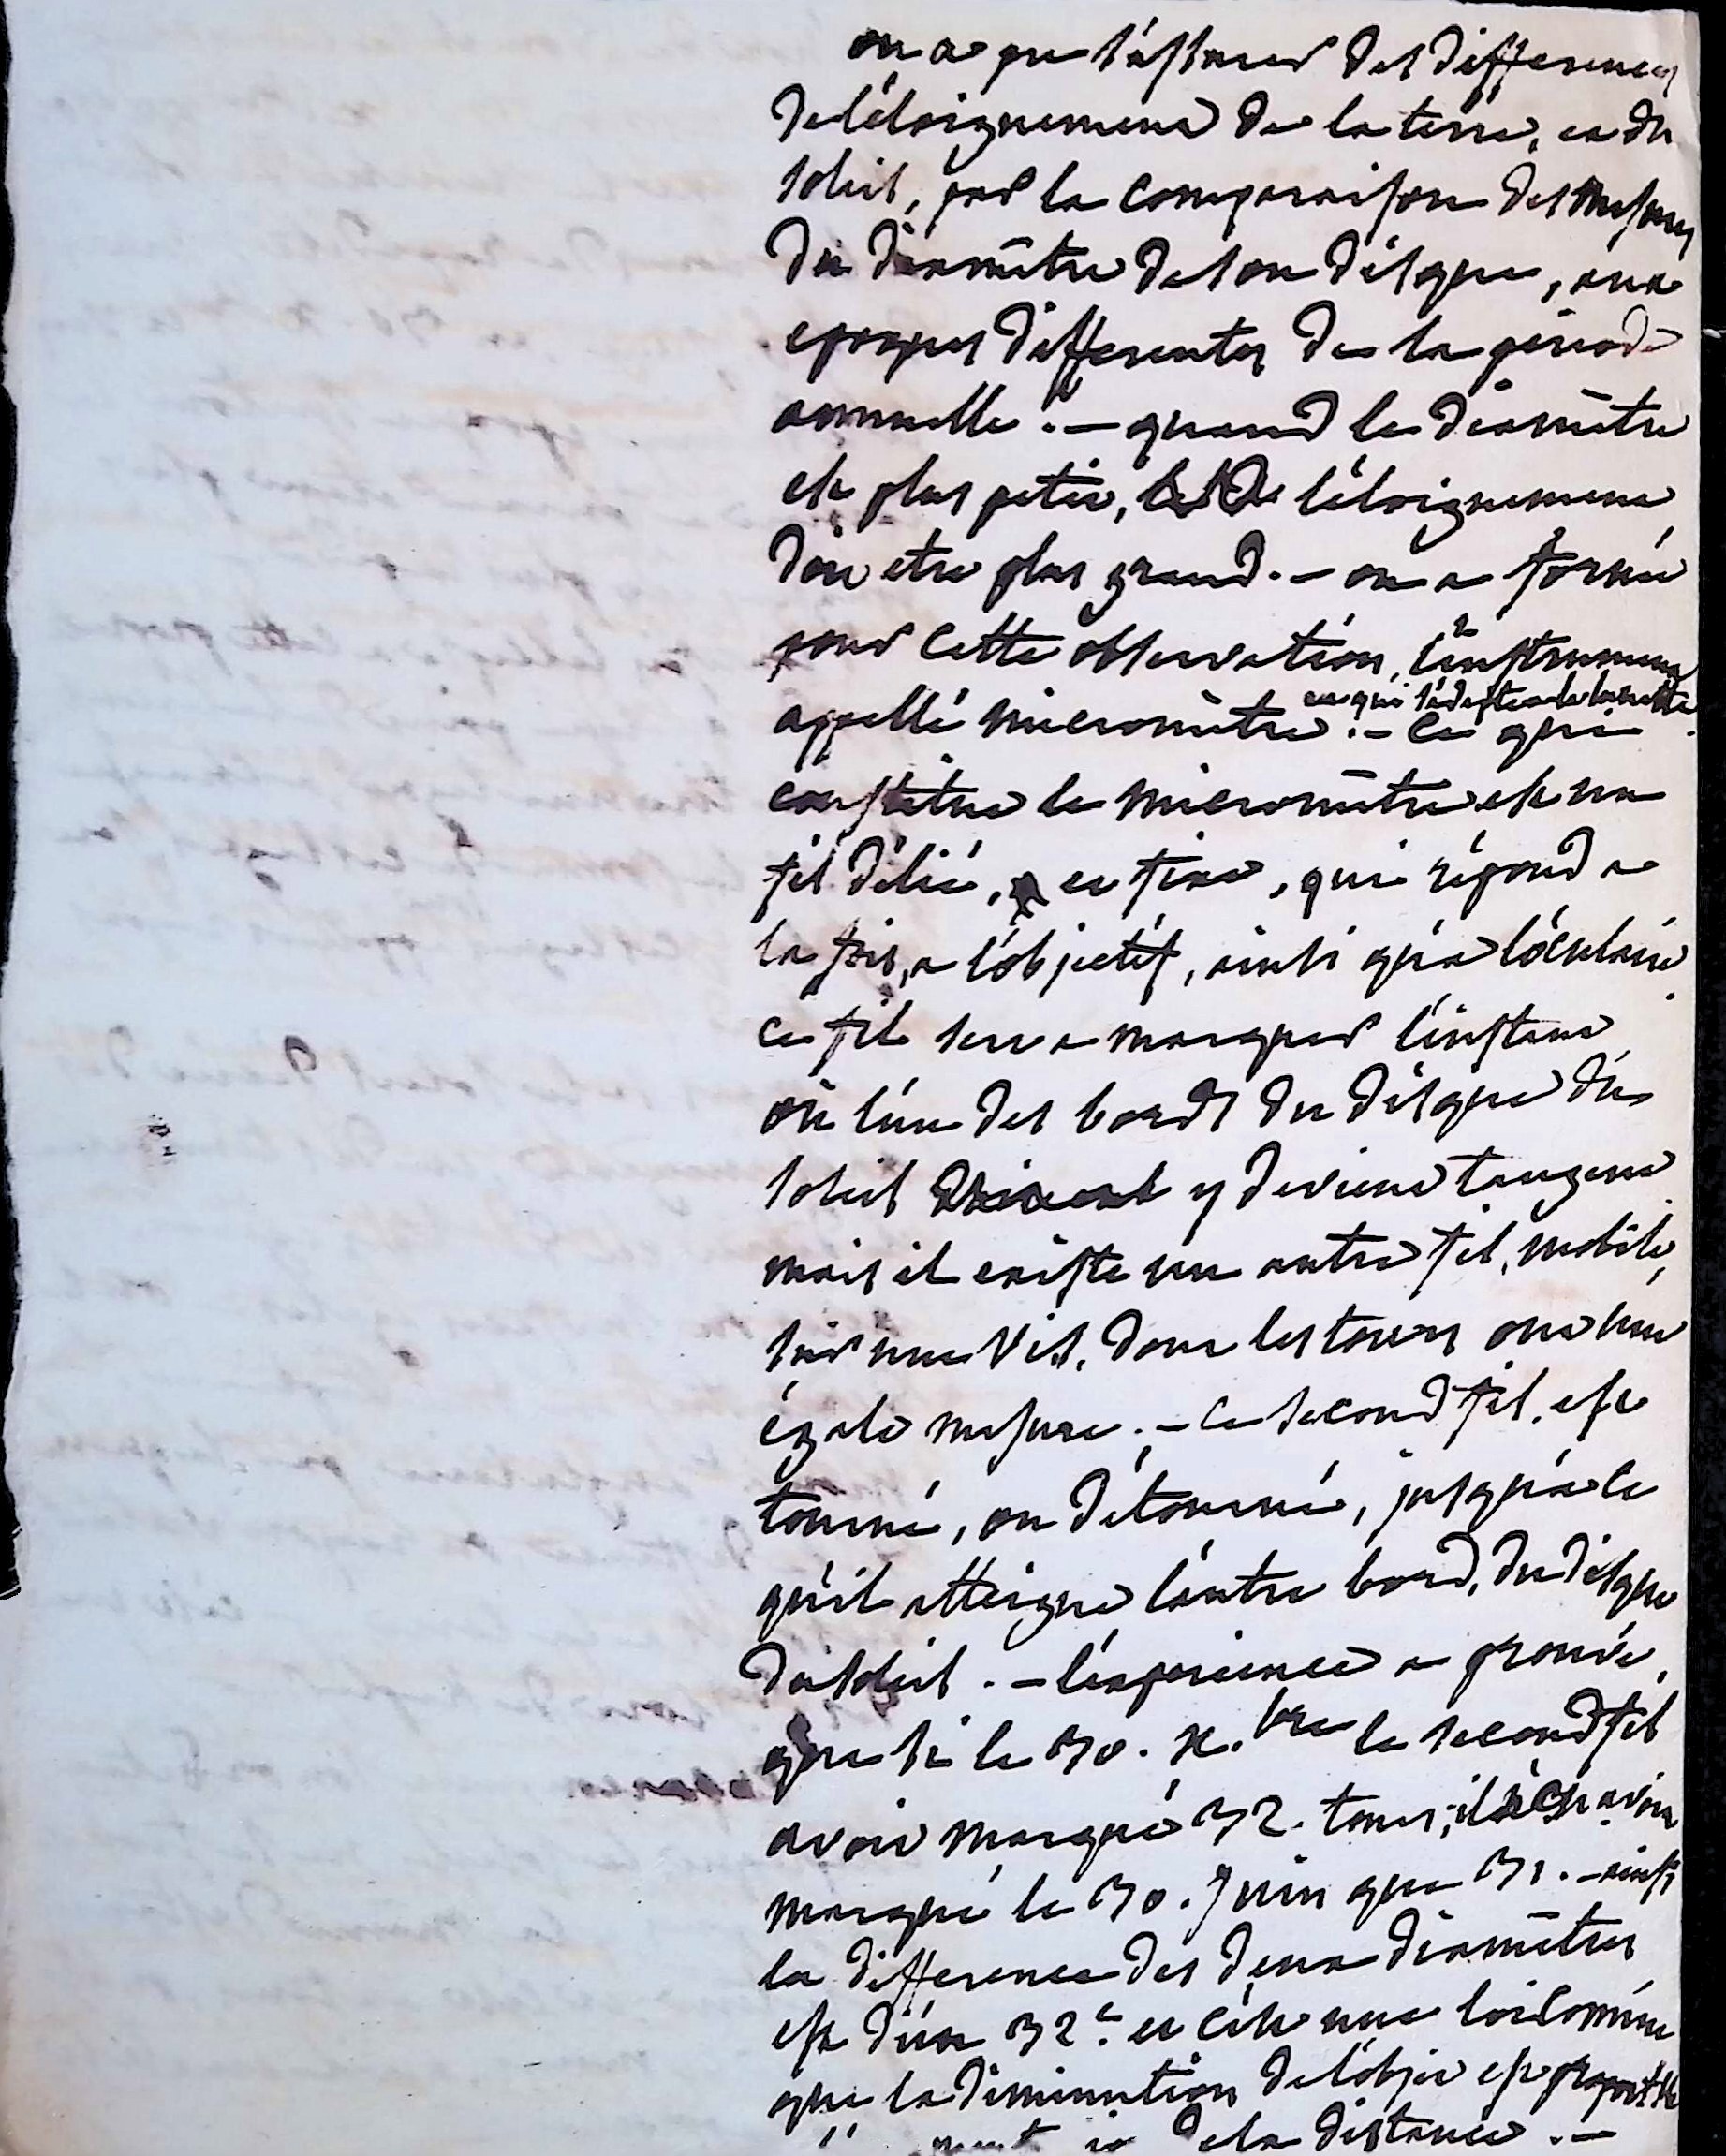 on a pu s'assurer des differences
de l'éloignement de la terre, et du
soleil, par la comparaison des mesures
du diamètre de son disque, aux
epoques differentes de la période
annuelle. — quand le diamètre
est plus petit, l'éloignement
doit etre plus grand. — on a formé
pour cette observation, l'instrument
appellé micromètre. — ce qui
et qui s'adapte a la lunette
constitue le micromètre est un
fil délié, et fixe, qui répond a
la fois, a l'objectif, ainsi qu'a l'oculaire.
ce fil sert a marquer l'instant
où l'un des bords du disque du
soleil y devient tangent.
mais il existe un autre fil, mobile,
sur une vis, dont les tours ont une
égale mesure. — ce second fil, est
tourné, ou détourné, jusqu'a ce
qu'il atteigne l'autre bord, du disque
du soleil. — l'experience a prouvé,
que si le 30. x.bre le second fil
avoit marqué 32. tours; il avoit
marqué le 30. Juin que 31. — ainsi
la difference des deux diamètres
est d'un 32.e et c'est une loi connue
que la diminution de l'objet est
de la distance. —